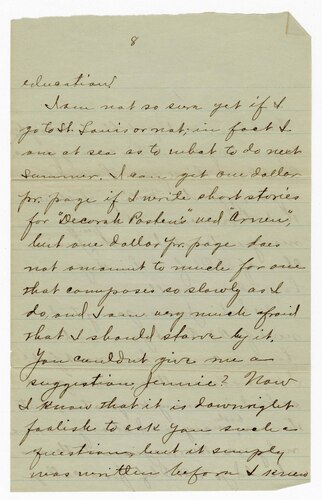 8
education!
I am not so sure yet if I
go to St. Louis or not; in fact I
am at sea as to what to do next
summer. I can get one dollar
pr. page if I write short stories
for "Decorah Posten's" ved "Arnen",
but one dollar pr. page does
not amount to much for one
that composes so slowly as I
do, and I am very much afraid
that I should starve by it.
You couldn't give me a
suggestion, Jennie? Now
I know that it is downright
foolish to ask you such a
question, but it simply
was written before I knew